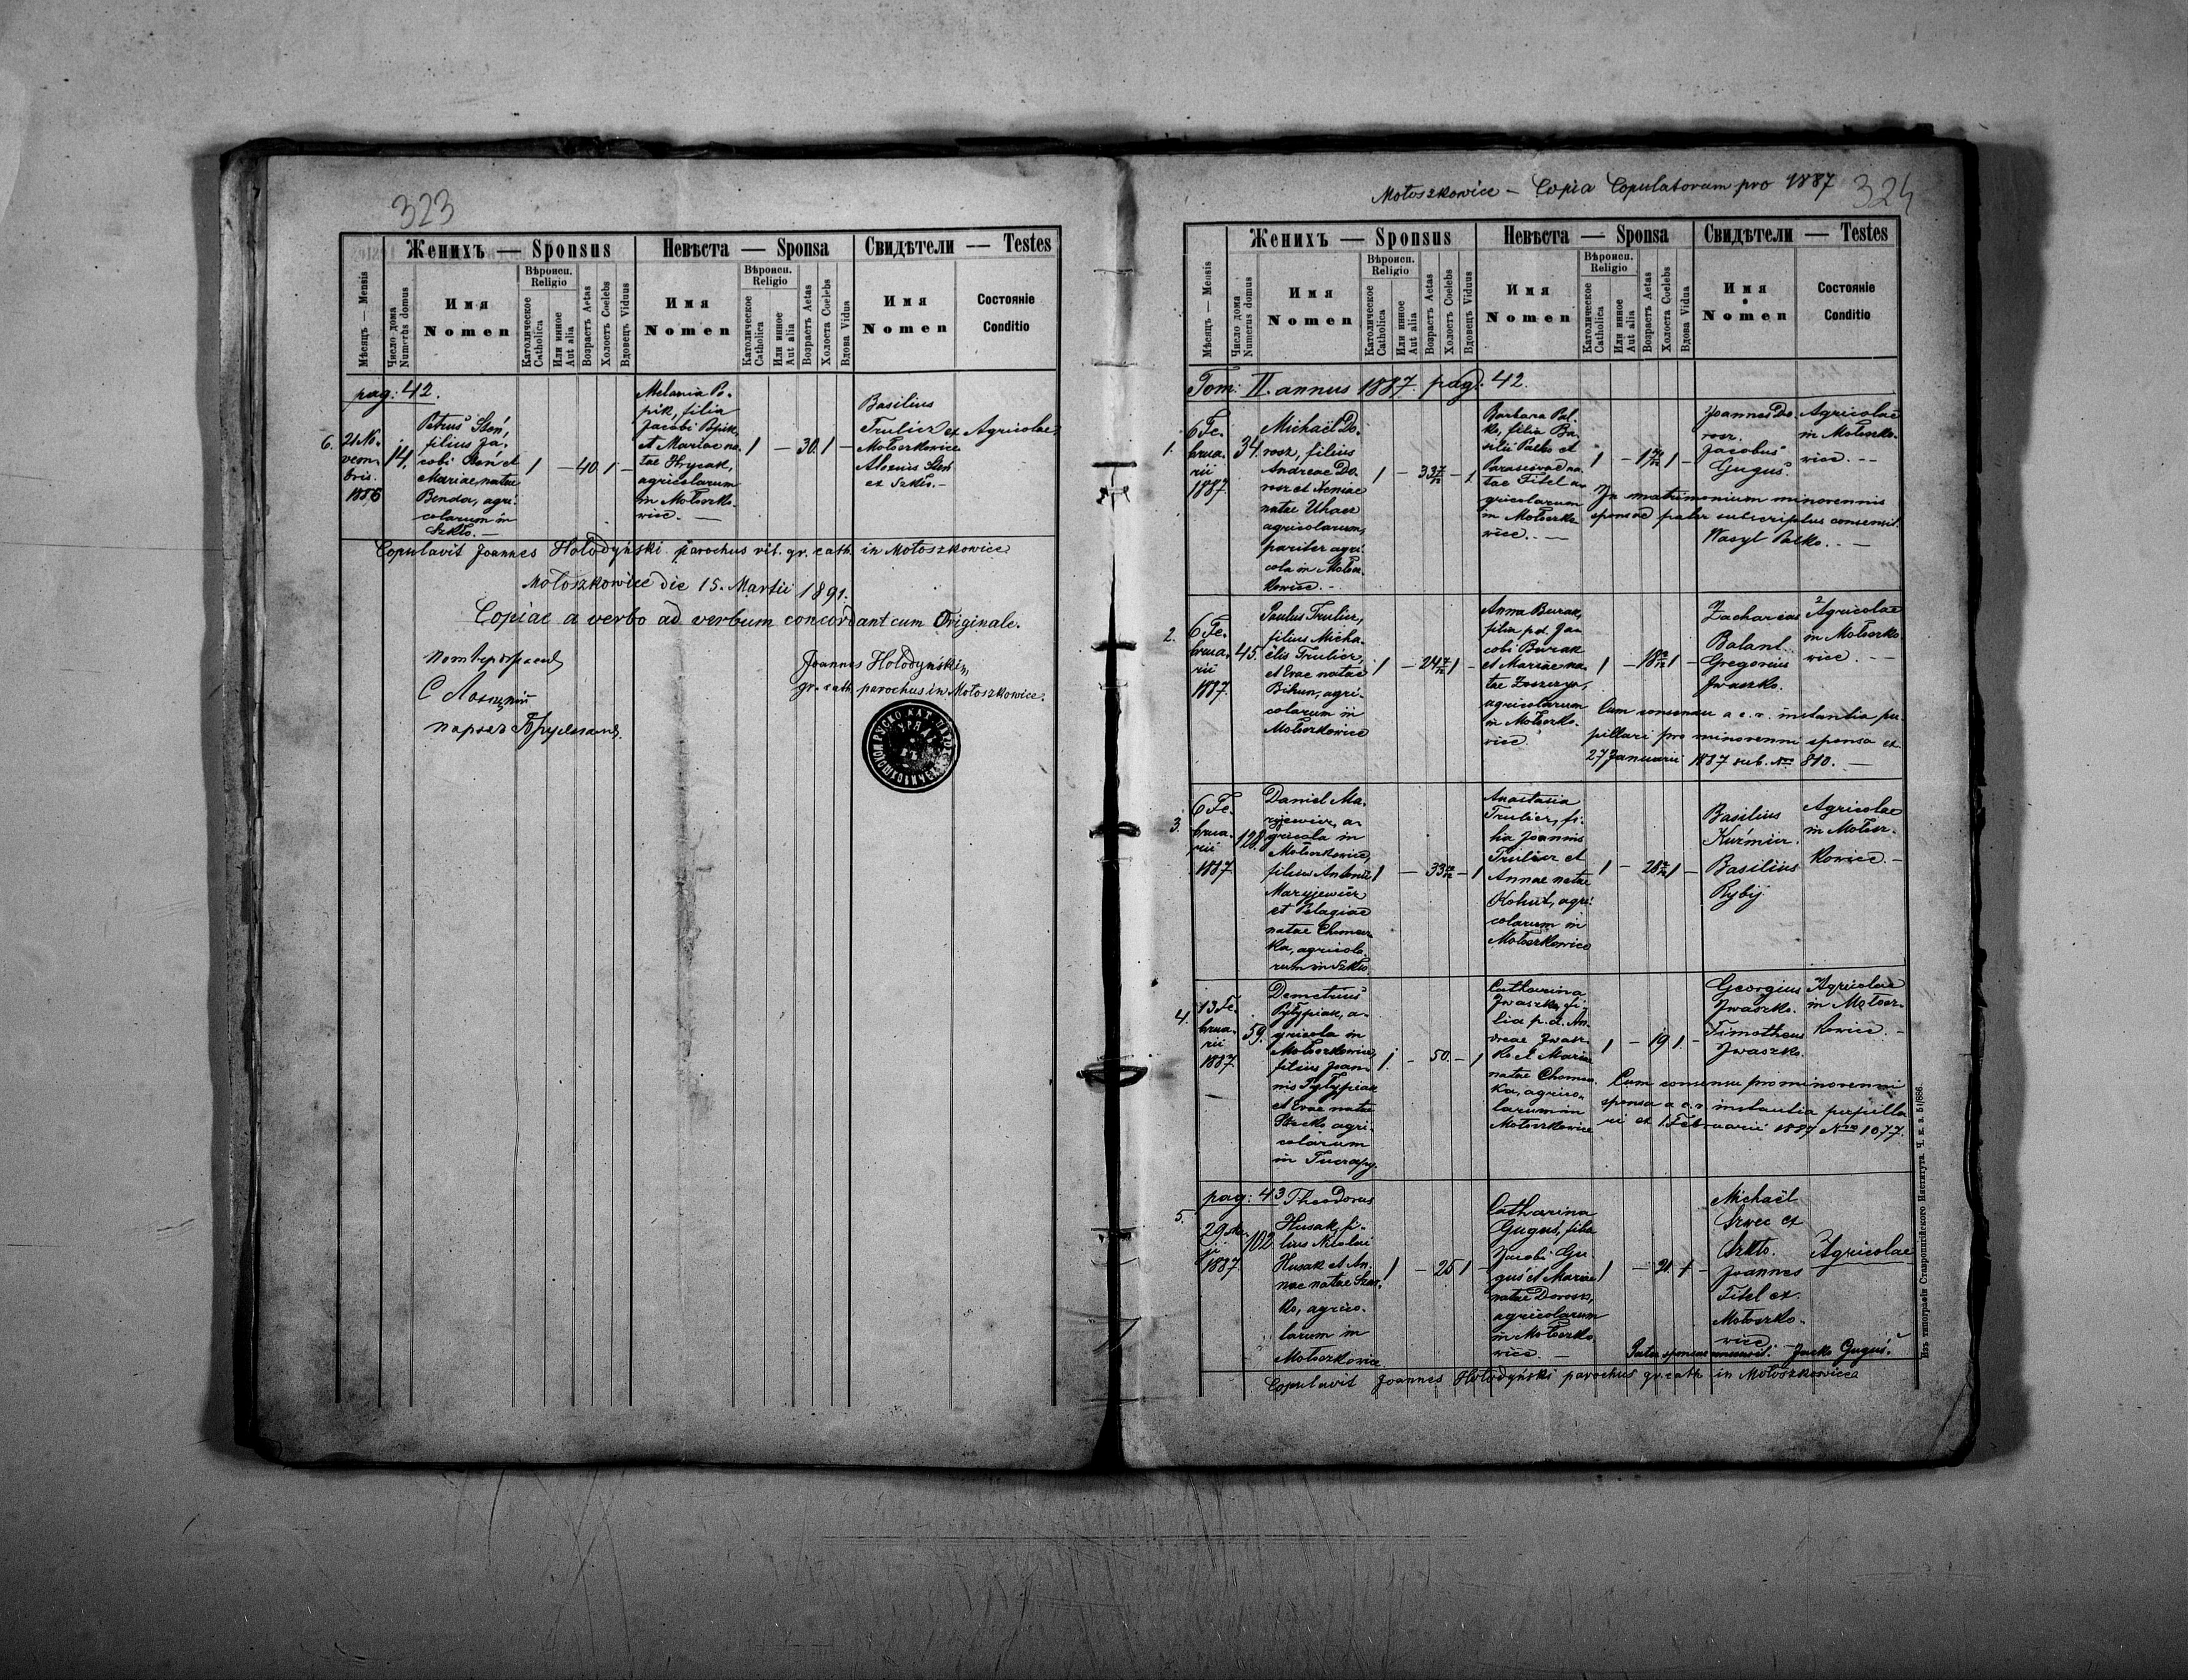 323
Женихъ — Sponsus
Невѣста — Sponsa
Свидѣтели — Testes
Мѣсяцъ — Mensis
Число дома
Numerus domus
Имя
Nomen
Вѣроисп.
Religio
Католическое
Catholica
Или инное
Aut alia
Возрастъ Aetas
Холостъ Coelebs
Вдовецъ Viduus
Имя
Nomen
Вѣроисп.
Religio
Католическое
Catholica
Или инное
Aut alia
Возрастъ Aetas
Холоста Coelebs
Вдова Vidua
Имя
Nomen
Состоянiе
Conditio
pag: 42.
6.
21 No-
vem-
bris.
1886
14.
Petrus Steń,
filius Ja-
cobi Steń et
Mariae natae
Benda, agri-
colarum in
Szkło. —
1 — 40. 1 —
Melania Po-
pik, filia
Jacobi Popik
et Mariae na-
tae Hrycak,
agricolarum
in Mołoszko-
wice. —
1 — 30. 1 —
Basilius
Trulicz ex
Mołoszkowice
Alexius Steń
ex Szkło. —
Agricolae
Copulavit Joannes Hołodyński parochus rit. gr. cath. in Mołoszkowice
Mołoszkowice die 15. Martii 1891.
Copiae a verbo ad verbum concordant cum Originale.
Joannes Hołodyński
gr. cath. parochus in Mołoszkowice.
Mołoszkowice — Copia Copulatorum pro 1887
324
Женихъ — Sponsus
Невѣста — Sponsa
Свидѣтели — Testes
Мѣсяцъ — Mensis
Число дома
Numerus domus
Имя
Nomen
Вѣроисп.
Religio
Католическое
Catholica
Или инное
Aut alia
Возрастъ Aetas
Холостъ Coelebs
Вдовецъ Viduus
Имя
Nomen
Вѣроисп.
Religio
Католическое
Catholica
Или инное
Aut alia
Возрастъ Aetas
Холоста Coelebs
Вдова Vidua
Имя
Nomen
Состоянiе
Conditio
Tom: II. annus 1887. pag: 42.
1.
6 Fe-
brua-
rii
1887.
34.
Michaël Do-
rosz, filius
Andreae Do-
rosz et Xeniae
natae Uhacz
agricolarum,
pariter agri-
cola in Mołosz-
kowice. —
1 — 33 — 1
Barbara Pal-
ko, filia Ba-
silii Palko et
Parascevae na-
tae Titel a-
gricolarum
in Mołoszko-
wice. —
1 — 1 —
Joannes Do-
rosz.
Jacobus
Guguś.
Agricolae
in Mołoszko-
wice. —
In matrimonium minorennis
sponsae pater subscriptus consensit.
Wasyl Palko. —
2.
6 Fe-
brua-
rii
1887.
45.
Paulus Trulicz,
filius Micha-
ëlis Trulicz,
et Evae natae
Bihun, agri-
colarum in
Mołoszkowice
1 — 24 1 —
Anna Burak,
filia p.d. Ja-
cobi Burak
et Mariae na-
tae
agricolarum
in Mołoszko-
wice.
1 — 18 1 —
Zacharias
Balant.
Gregorius
Iwaszko.
Agricolae
in Mołoszko-
wice. —
Cum consensu a c. r. instantia pu-
pillari pro minorenni sponsa ex
27 Januarii 1887 sub. No 810. —
3.
6 Fe-
brua-
rii
1887
128.
Daniel Ma-
ryjewicz, a-
gricola in
Mołoszkowice,
filius Antonii
Maryjewicz
et Pelagiae
natae Chomia-
ka, agricola-
rum in Szkło.
1 — 33 — 1
Anastasia
Trulicz, fi-
lia Joannis
Trulicz et
Annae natae
Kohut, agri-
colarum in
Mołoszkowice
1 — 28 1 —
Basilius
Kuźmicz.
Basilius
Rybij
Agricolae
in Mołosz-
kowice. —
4.
13 Fe-
brua-
rii
1887
59.
Demetrius
Pyłypiak, a-
gricola in
Mołoszkowice,
filius Joan-
nis Pyłypiak
et Evae natae
Stecko agri-
colarum
in Tuczapy.
1. — 50. — 1
Catharina
Iwaszko, fi-
lia p.d. An-
dreae Iwasz-
ko et Mariae
natae Chomia-
ka, agrico-
larum in
Mołoszkowice
1 — 19 1 —
Georgius
Iwaszko.
Timotheus
Iwaszko.
Agricolae
in Mołosz-
kowice. —
Cum consensu pro minorenni
sponsa a c. r. instantia pupilla-
ri ex 1 Februarii 1887 No 1077.
pag: 43
5.
29
1887.
102
Theodorus
Husak, fi-
lius Nicolai
Husak et An-
nae natae
ko, agrico-
larum in
Mołoszkowice.
1 — 25 1 —
Catharina
Guguś, filia
Jacobi Gu-
guś et Mariae
natae Dorosz,
agricolarum
in Mołoszko-
wice. —
1 — 21. 1 —
Michaël
Szwec ex
Szkło.
Joannes
Titel ex
Mołoszko-
wice
Agricolae
Pater sponsae Jacko Guguś.
Copulavit Joannes Hołodyński parochus gr. cath. in Mołoszkowice
Изъ типографiи Ставропигiйского Института. Ч. к. з. 51/886.